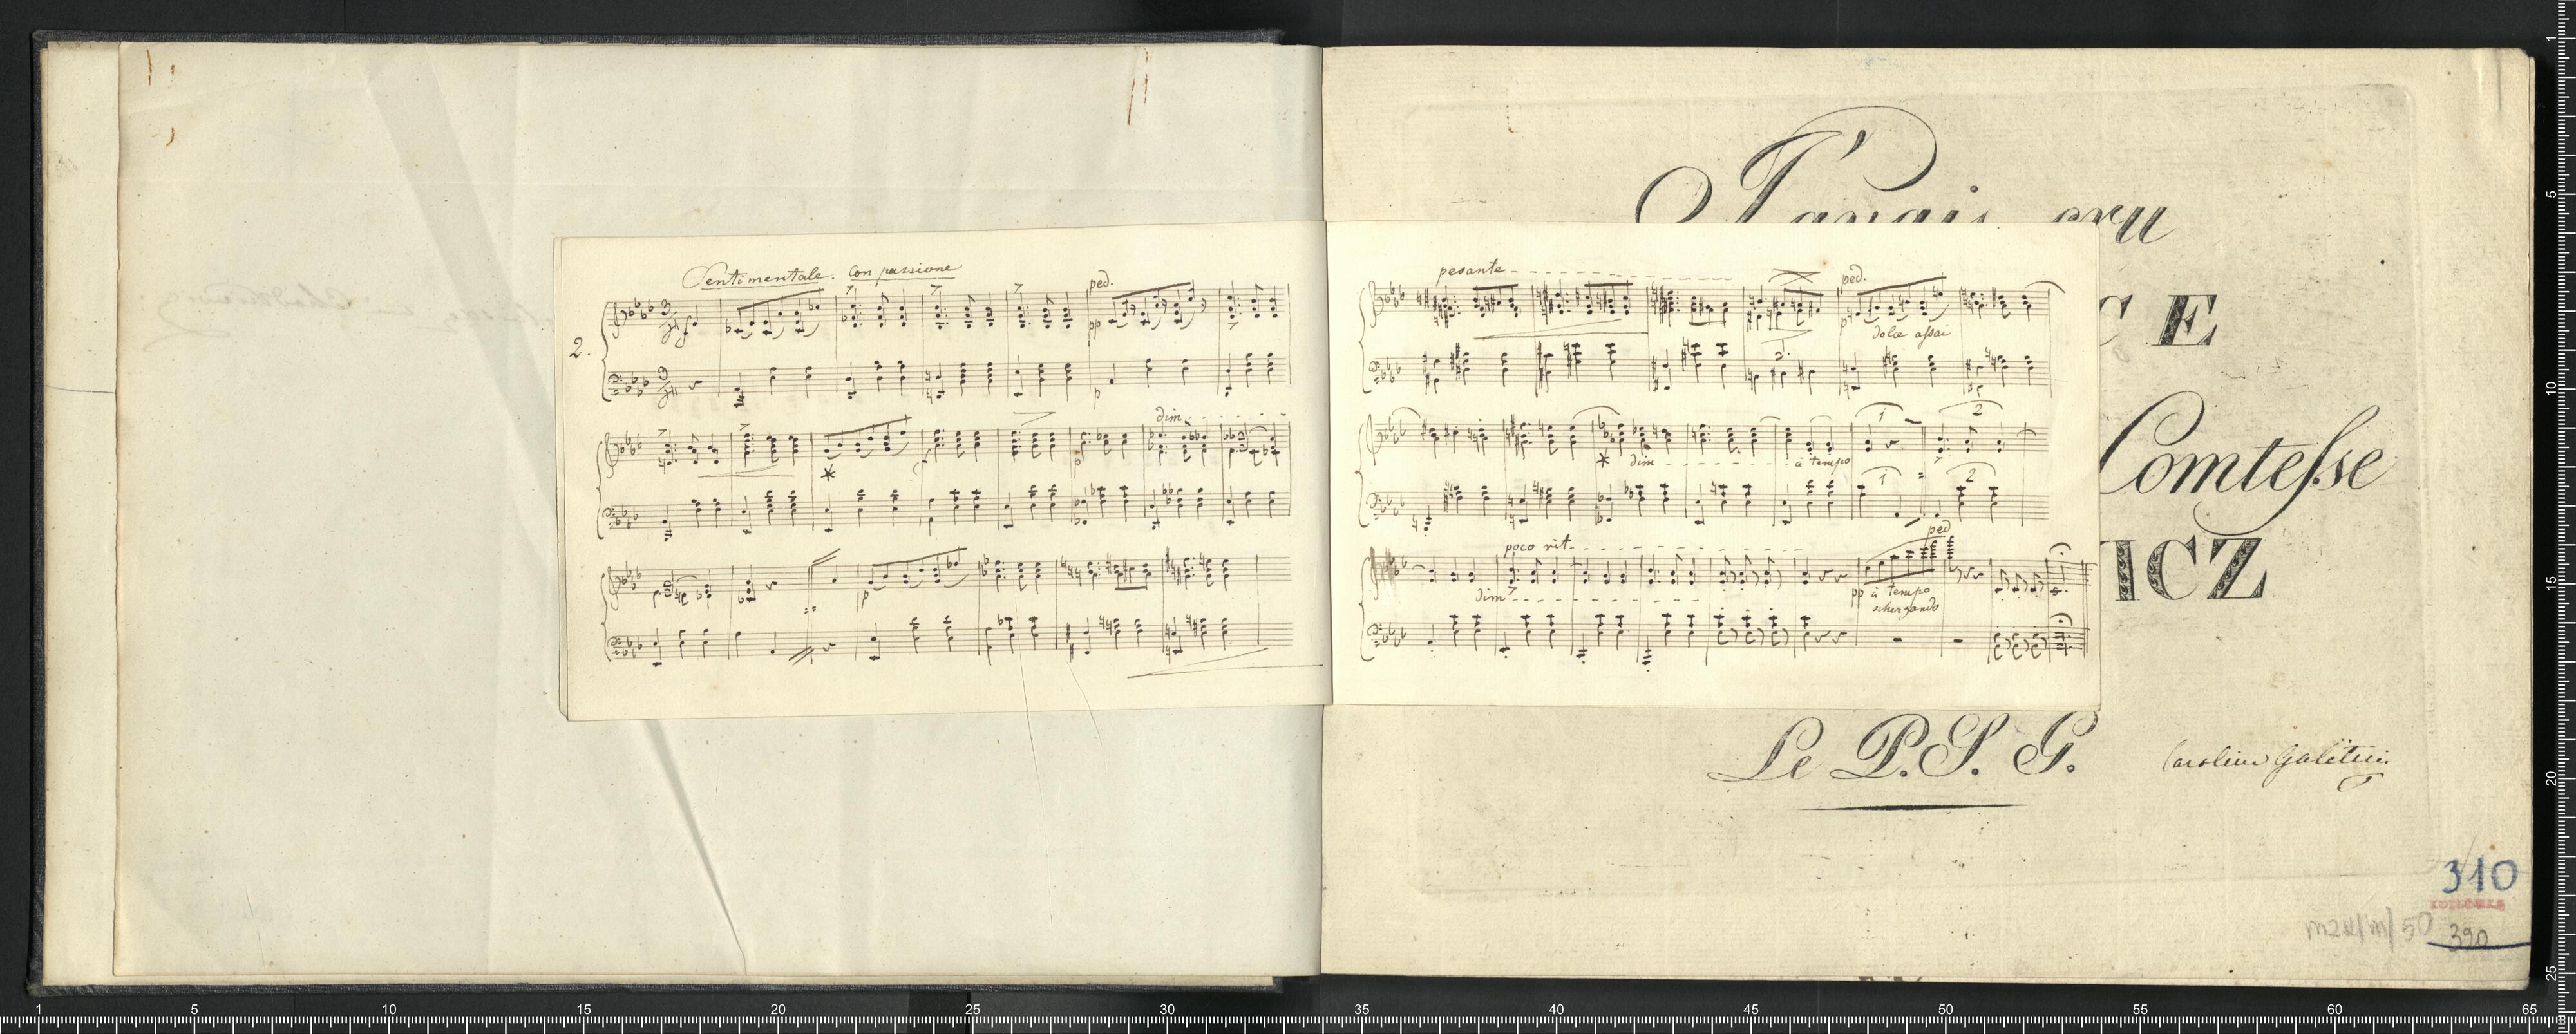 Sentimentale. Con passione
2.
ped.
pp
p
dim.
p
pesante
ped.
p
dolce assai
1
2
dim
à tempo
1
2
poco rit
ped
dim
pp à tempo
scherzando
J'avais cru
CE
Comtesse
ICZ
Le P. S. G.
Caroline Galitzin
310
390
1 5 10 15 20 25 30 35 40 45 50 55 60 65
1
5
10
15
20
25